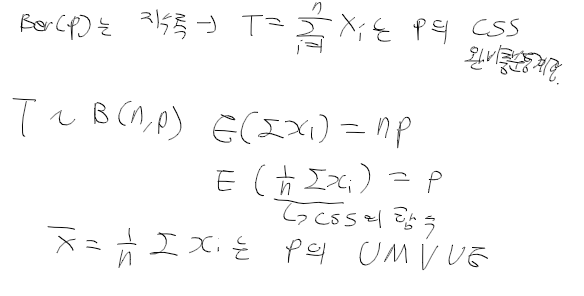 Ber(p)는 지수족 → T = \sum_{i=1}^{n} X_i 는 p의 CSS
완비충분통계량.
T ~ B(n,p) E(Σx_i) = np
E(\frac{1}{n} Σx_i) = p
↳ CSS의 함수
\overline{X} = \frac{1}{n} Σx_i 는 p의 UMVUE